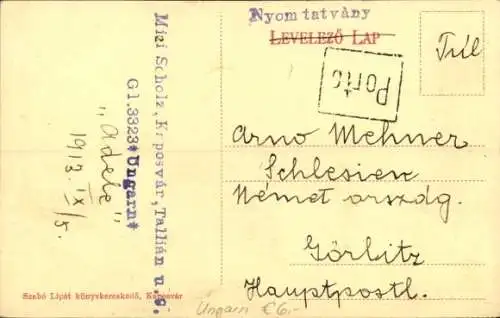 Nyomtatvány
LEVELEZŐ LAP
Porto
Arno Mehner
Schlesien
Német ország.
Görlitz
Hauptpostl.
Mizi Scholz, Kaposvár, Tallián u.
Gl.3323*Ungarn*
„Adele"
1913. IX/5.
Szabó Lipót könyvkereskedő, Kaposvár
Ungarn €6,-